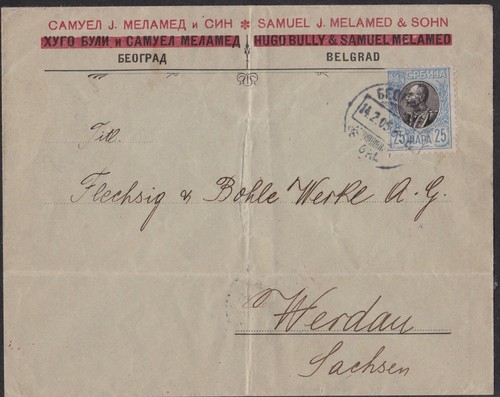 САМУЕЛ Ј. МЕЛАМЕД и СИН * SAMUEL J. MELAMED & SOHN
ХУГО БУЛИ и САМУЕЛ МЕЛАМЕД HUGO BULLY & SAMUEL MELAMED
БЕОГРАД BELGRAD
СРБИЈА
25 ПАРА 25
БЕОГ
14.2.05
Titl.
Flechsig & Bohle Werke A. G.
Werdau
Sachsen